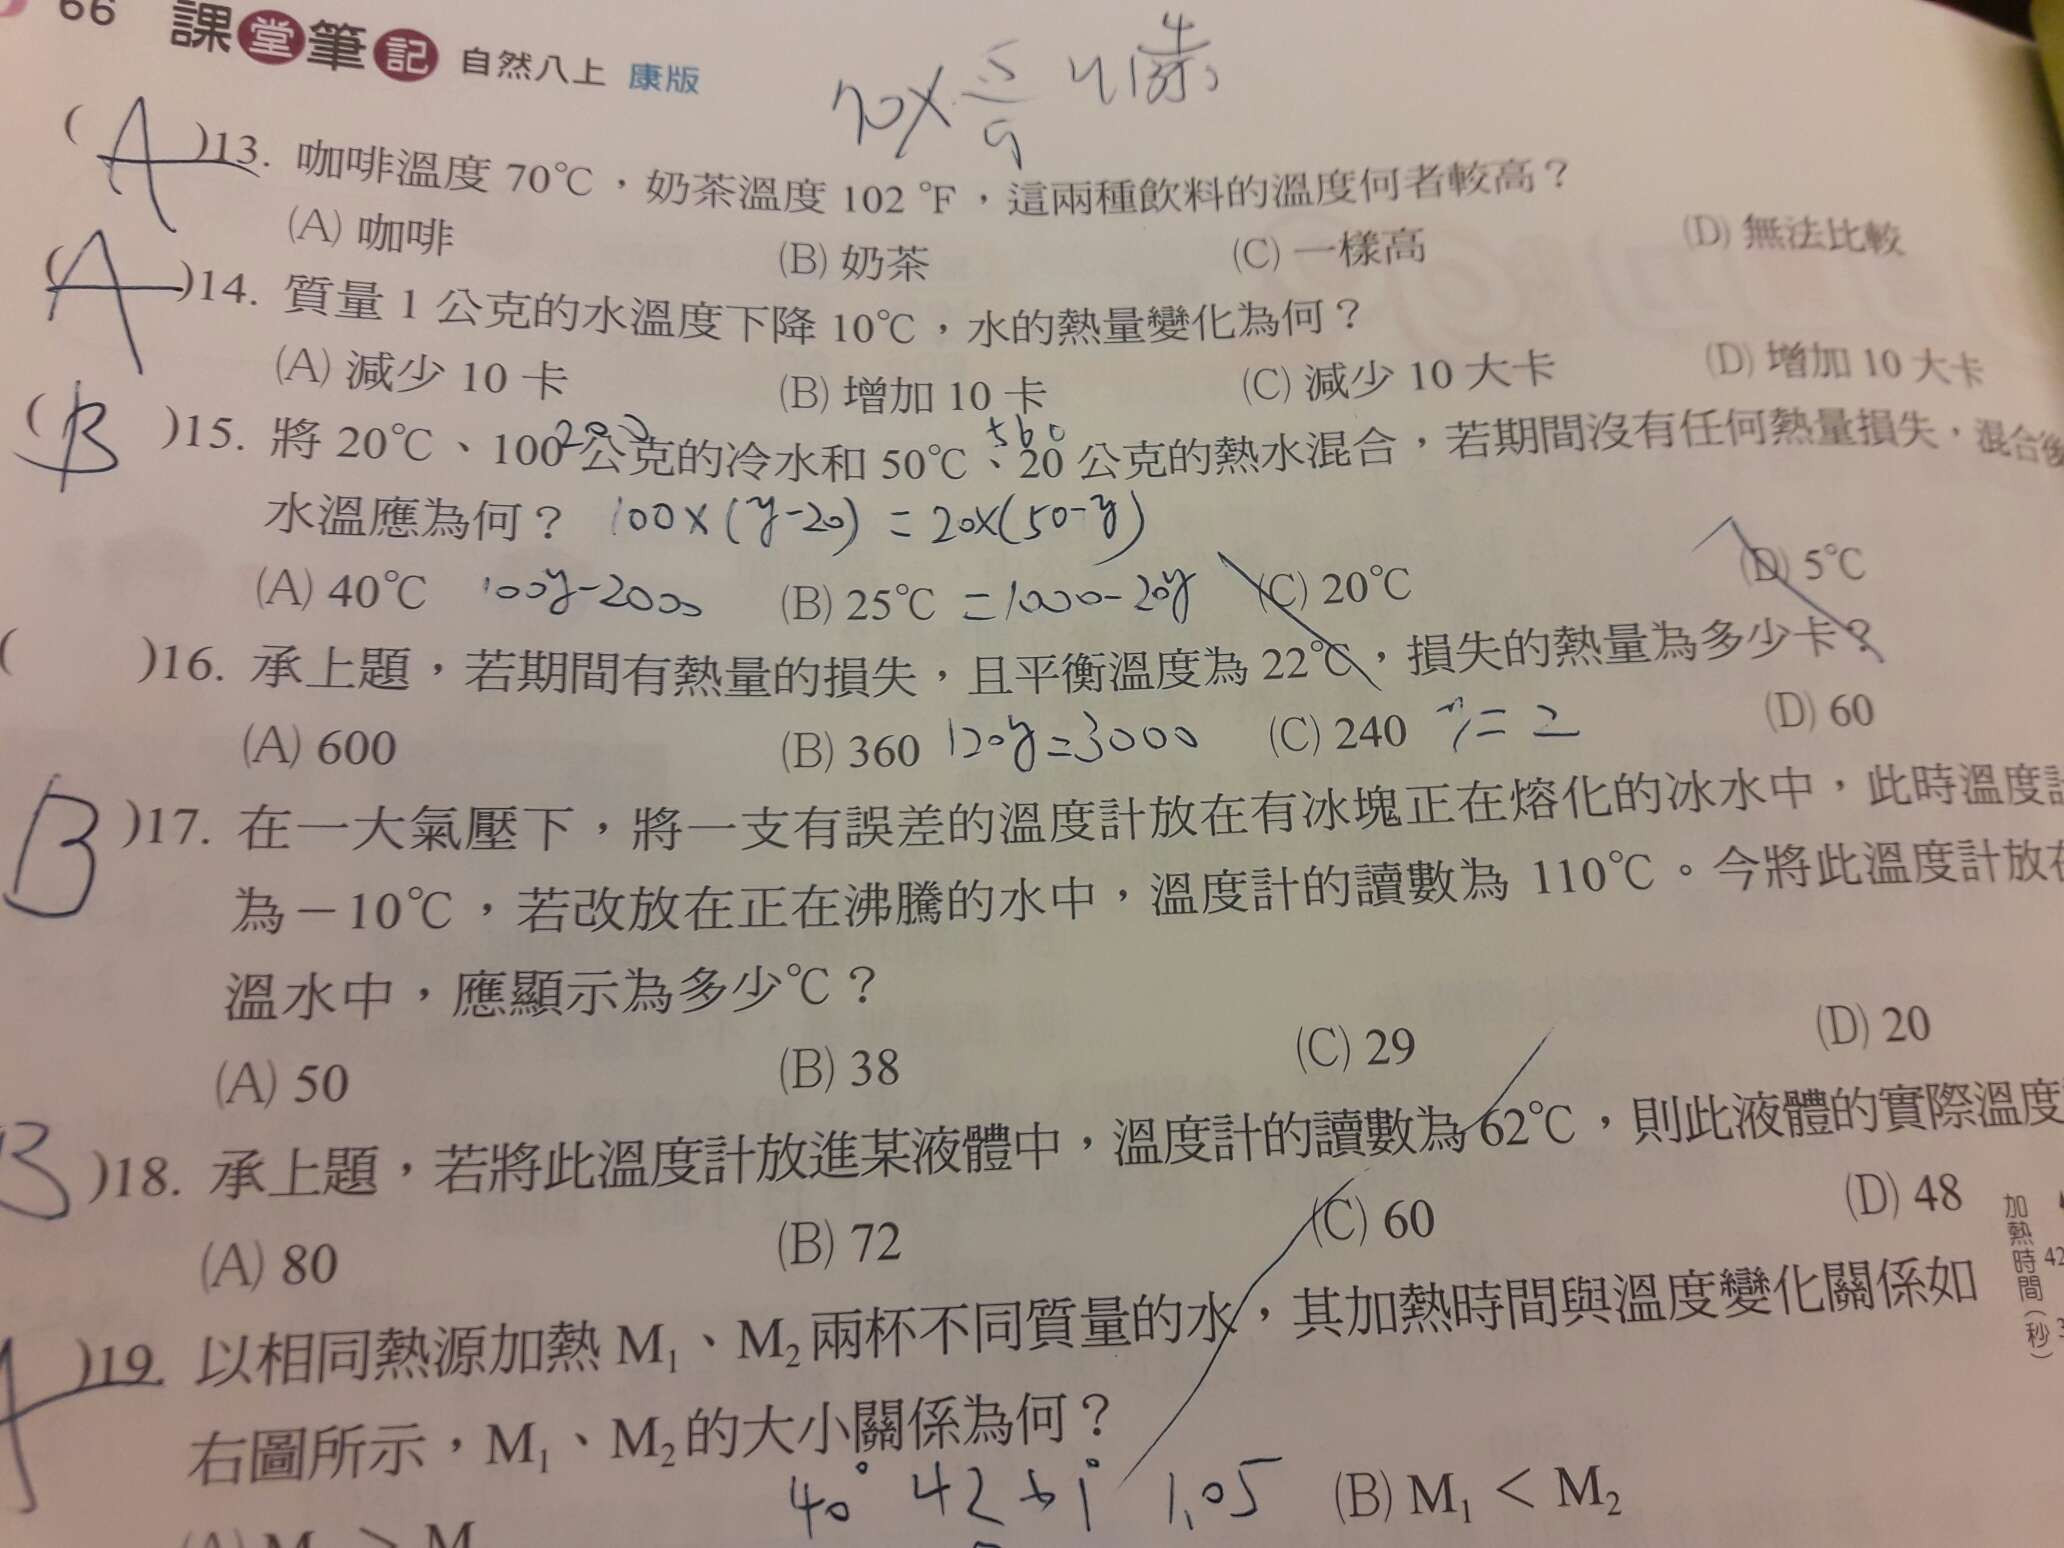 66 課堂筆記 自然八上 康版
70×5/9
(A)13. 咖啡溫度 70℃，奶茶溫度 102 ℉，這兩種飲料的溫度何者較高？
(A) 咖啡 (B) 奶茶 (C) 一樣高 (D) 無法比較
(A)14. 質量 1 公克的水溫度下降 10℃，水的熱量變化為何？
(A) 減少 10 卡 (B) 增加 10 卡 (C) 減少 10 大卡 (D) 增加 10 大卡
(B)15. 將 20℃、100 公克的冷水和 50℃、20 公克的熱水混合，若期間沒有任何熱量損失，混合後
水溫應為何？ 100×(y-20) = 20×(50-y)
(A) 40℃ 100y-2000 (B) 25℃ =1000-20y (C) 20℃ (D) 5℃
( )16. 承上題，若期間有熱量的損失，且平衡溫度為 22℃，損失的熱量為多少卡？
(A) 600 (B) 360 120y=3000 (C) 240 y=2 (D) 60
B )17. 在一大氣壓下，將一支有誤差的溫度計放在有冰塊正在熔化的冰水中，此時溫度計
為－10℃，若改放在正在沸騰的水中，溫度計的讀數為 110℃。今將此溫度計放在
溫水中，應顯示為多少℃？
(A) 50 (B) 38 (C) 29 (D) 20
B )18. 承上題，若將此溫度計放進某液體中，溫度計的讀數為 62℃，則此液體的實際溫度
(A) 80 (B) 72 (C) 60 (D) 48
A )19. 以相同熱源加熱 M1、M2 兩杯不同質量的水，其加熱時間與溫度變化關係如
右圖所示，M1、M2 的大小關係為何？
加熱時間(秒)
42
40° 42 1° 1.05 (B) M1 < M2